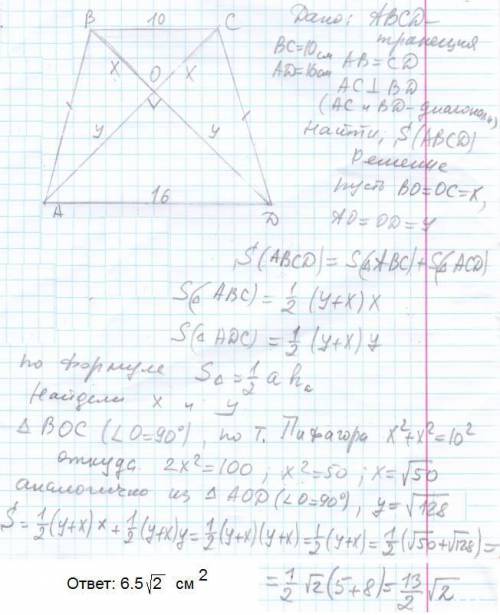 B 10 C
X O X
y y
A 16 D
Дано: ABCD-
трапеция
BC=10см AB=CD
AD=16см AC⊥BD
(AC и BD-диагонали)
Найти: S(ABCD)
Решение
Пусть BO=OC=x,
AO=OD=y
S(ABCD)=S(△ABC)+S(△ACD)
S(△ABC)=½(y+x)x
S(△ADC)=½(y+x)y
по формуле S△=½ a hₐ
Найдем x и y
△BOC (∠O=90°), по т. Пифагора x²+x²=10²
откуда 2x²=100; x²=50; x=√50
аналогично из △AOD(∠O=90°), y=√128
S=½(y+x)x+½(y+x)y=½(y+x)(y+x)=½(y+x)=½(√50+√128)=
=½√2(5+8)=13/2√2
Ответ: 6.5√2 см²